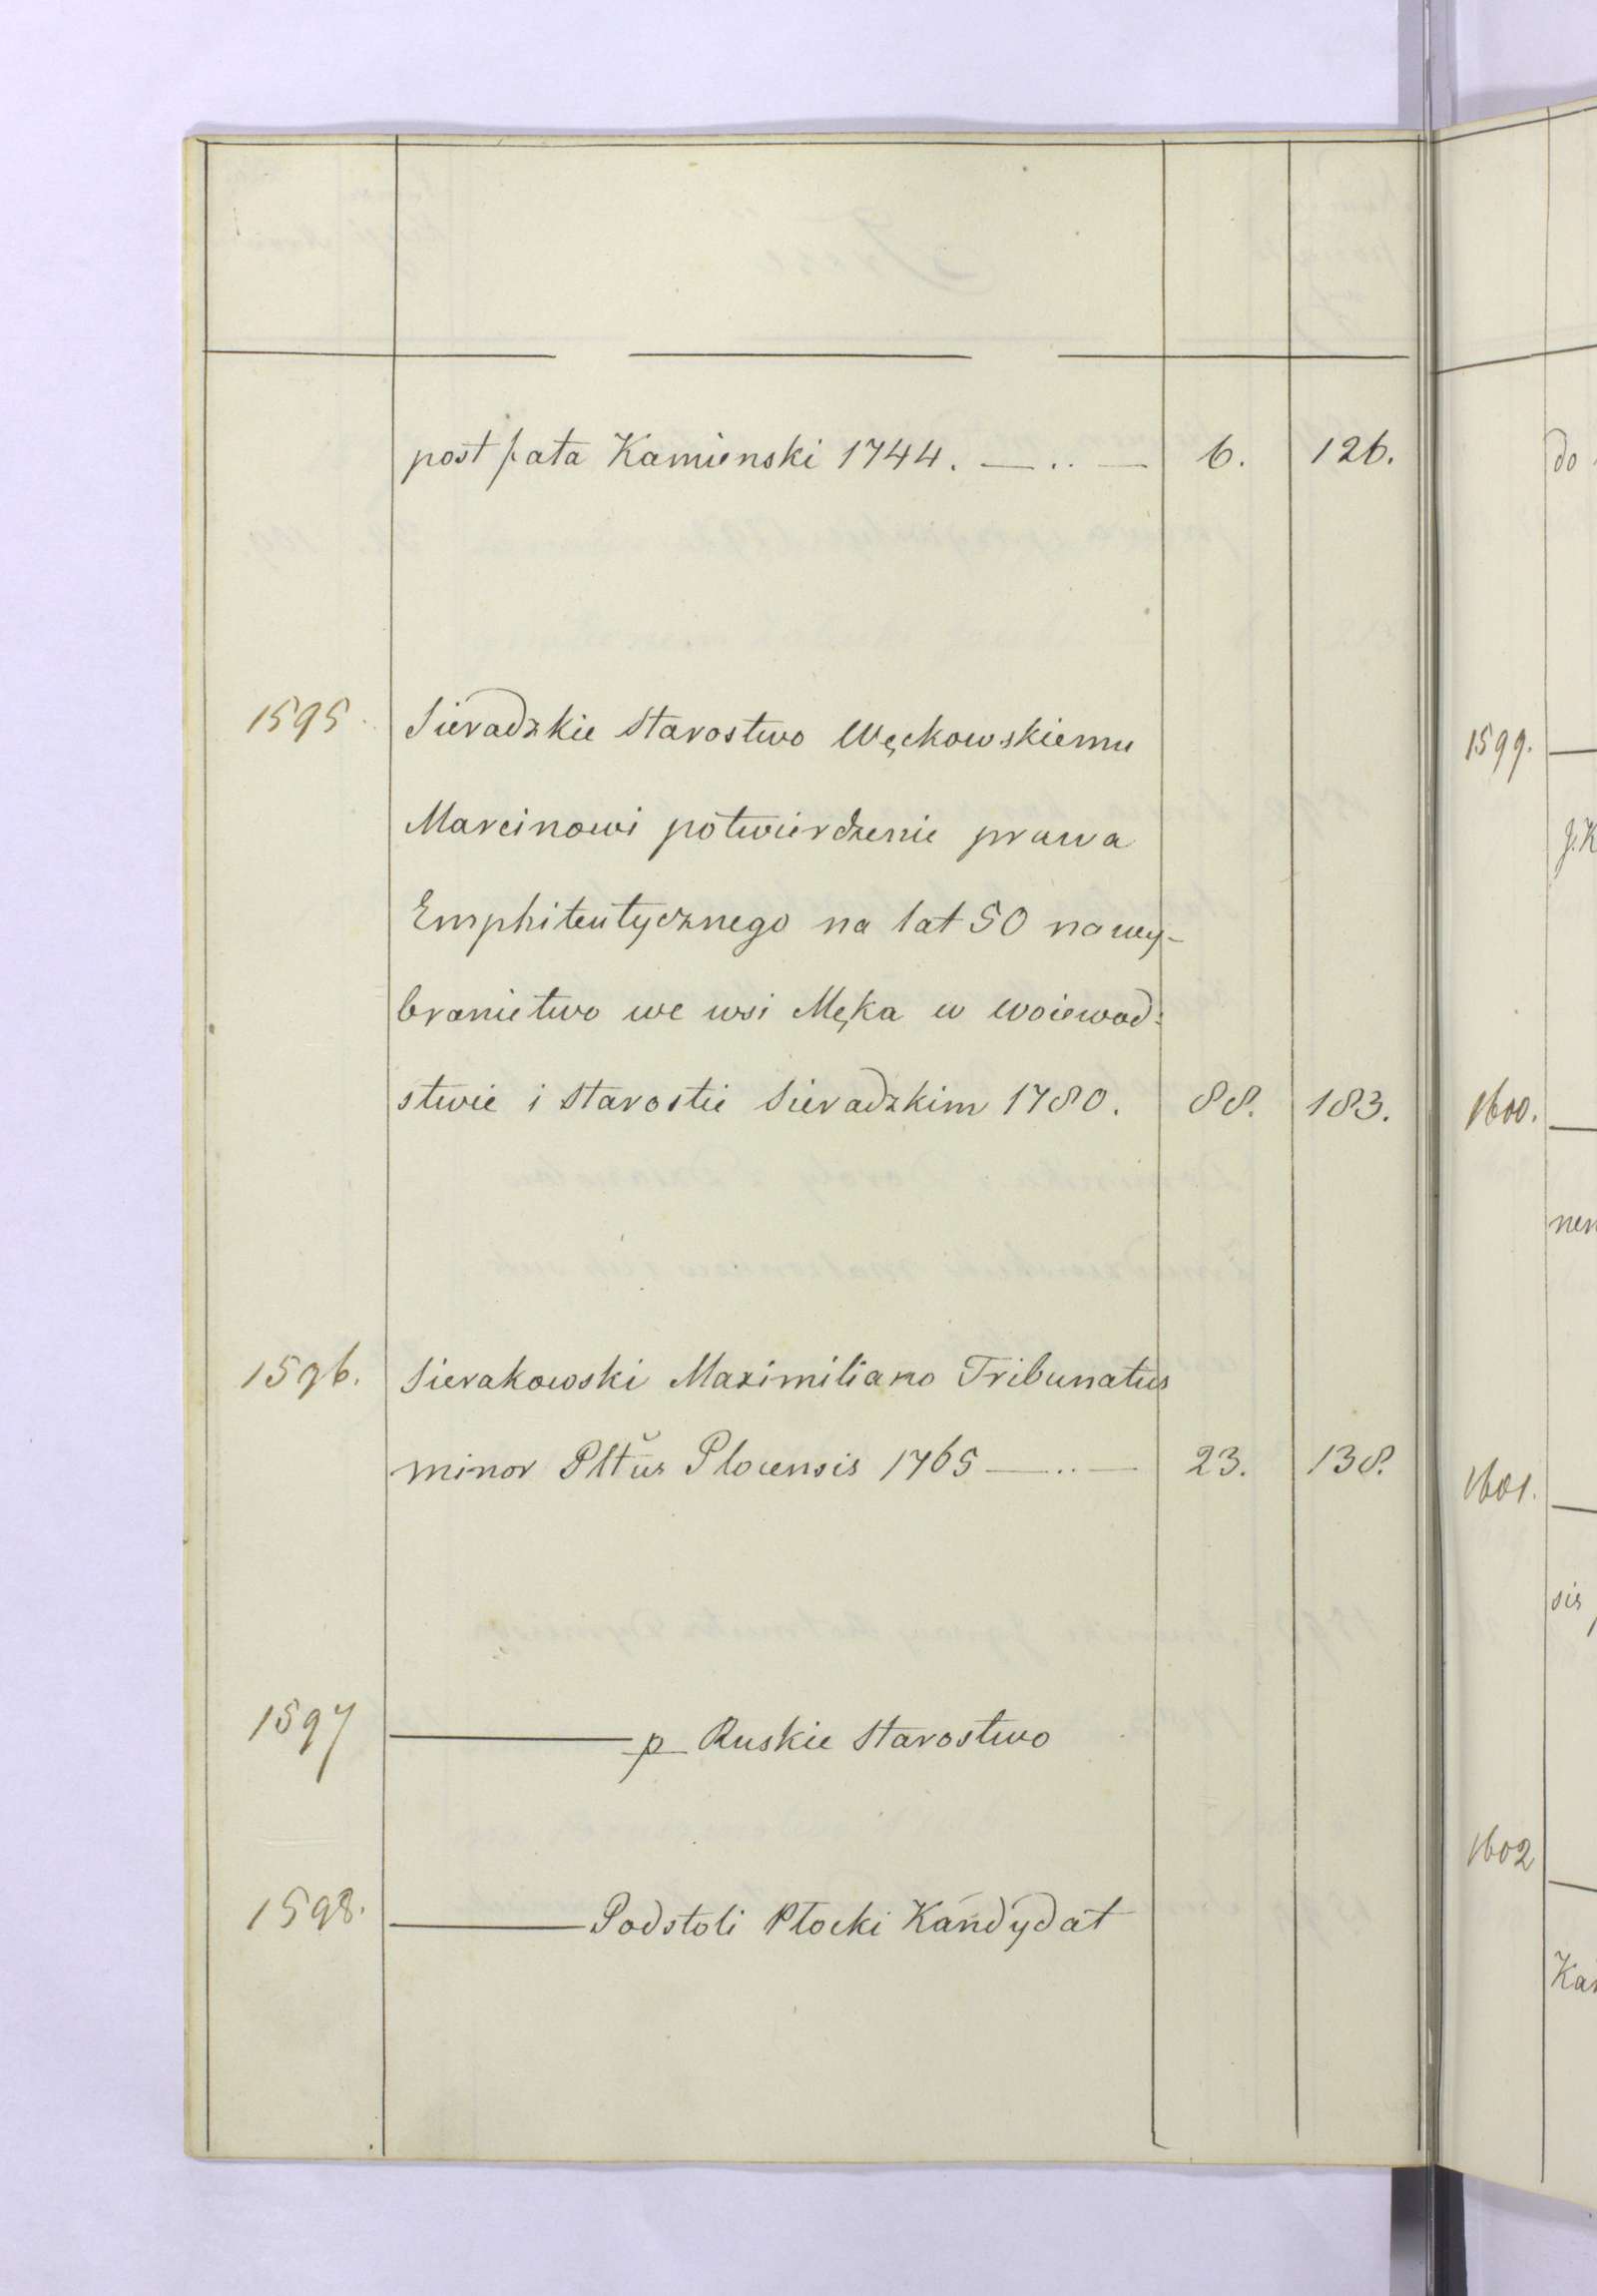 post fata Kamienski 1744. — .. — 6. 126.
1595. Sieradzkie Starostwo Węckowskiemu
Marcinowi potwierdzenie prawa
Emphiteutycznego na lat 50 na wy-
branietwo we wsi Męka w woiewod:
stwie i Starostie Sieradzkim 1780. 88. 183.
1596. Sierakowski Maximiliano Tribunatus
minor Pltŭs Plocensis 1765 — .. — 23. 138.
1597 ——— p Ruskie Starostwo
1598. ——— Podstoli Płocki Kandydat
do
1599. —
J.K
1600. —
nen
1601. —
sis
1602 —
Kan